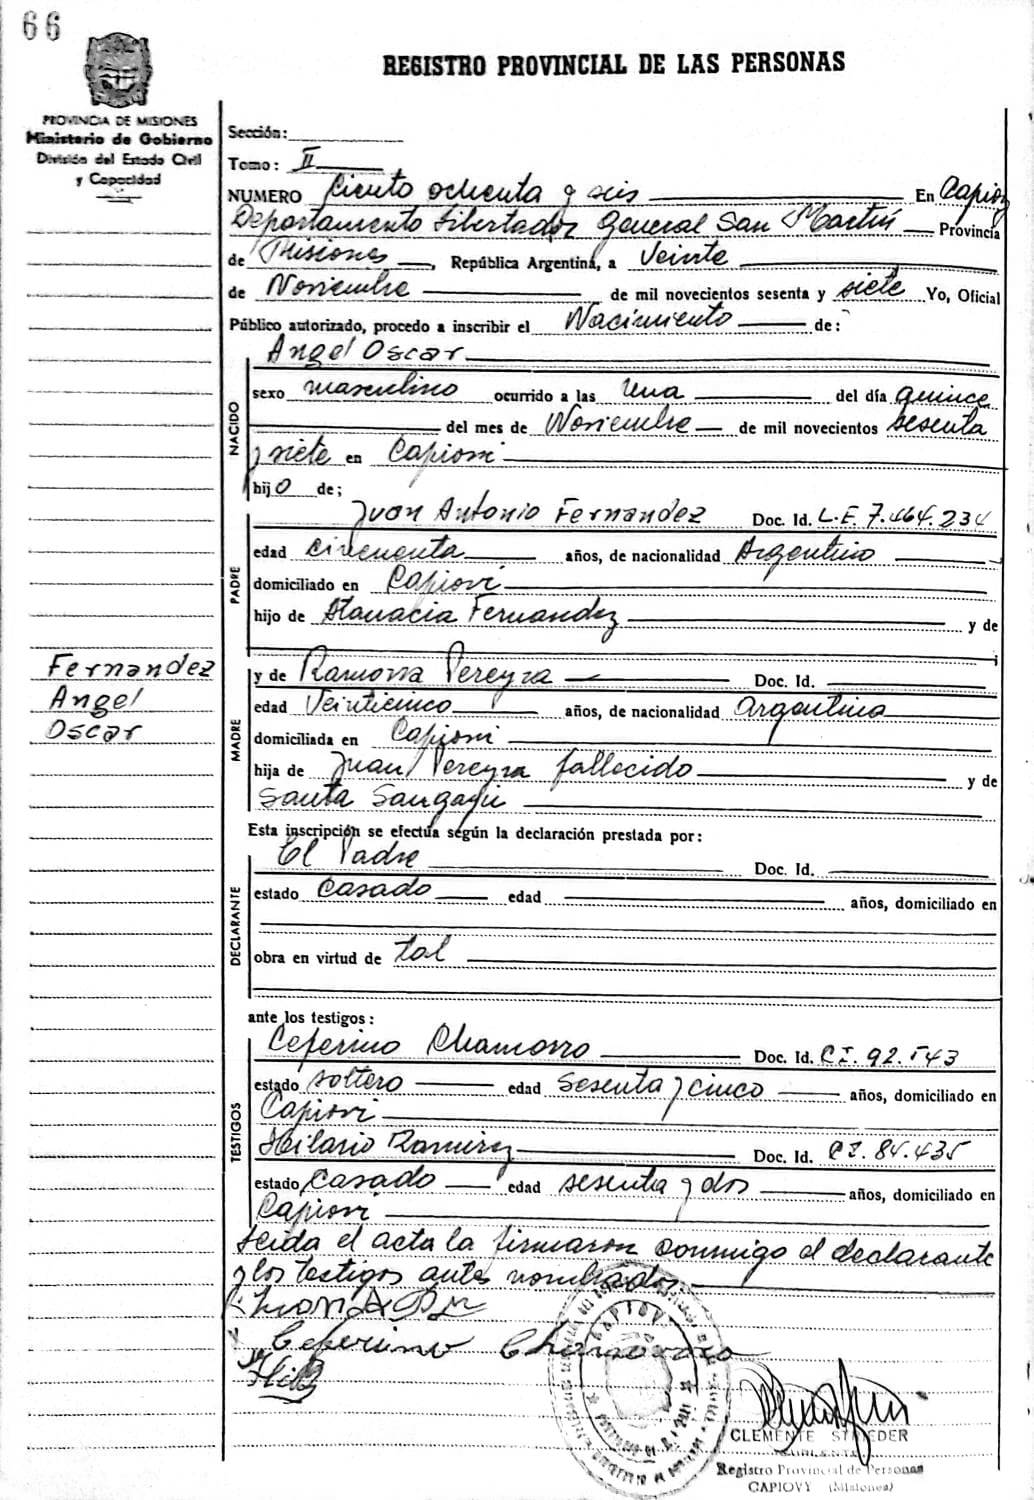 66
REGISTRO PROVINCIAL DE LAS PERSONAS
PROVINCIA DE MISIONES
Ministerio de Gobierno
División del Estado Civil
y Capacidad
Sección:
Tomo: II
NUMERO Ciento ochenta y seis En Capiov
Departamento Libertador General San Martín Provincia
de Misiones, República Argentina, a Veinte
de Noviembre de mil novecientos sesenta y siete Yo, Oficial
Público autorizado, procedo a inscribir el Nacimiento de:
Angel Oscar
NACIDO
sexo masculino ocurrido a las Una del día quince
del mes de Noviembre de mil novecientos sesenta
y siete en Capiovi
hijo de;
Juan Antonio Fernandez Doc. Id. L.E. 7.464.234
PADRE
edad cincuenta años, de nacionalidad Argentino
domiciliado en Capiovi
hijo de Atanacia Fernandez y de
Fernandez
Angel
Oscar
y de Ramona Pereyra Doc. Id.
MADRE
edad Veinticinco años, de nacionalidad argentina
domiciliada en Capiovi
hija de Juan Pereyra fallecido y de
Santa
Esta inscripción se efectúa según la declaración prestada por:
El Padre Doc. Id.
DECLARANTE
estado Casado edad años, domiciliado en
obra en virtud de tal
ante los testigos:
Ceferino Chamorro Doc. Id. CI. 92.
TESTIGOS
estado soltero edad sesenta y cinco años, domiciliado en
Capiovi
Hilario Ramirez Doc. Id. CI. 84.435
estado casado edad sesenta y dos años, domiciliado en
Capiovi
Leida el acta la firmaron conmigo el declarante
y los testigos antes nombrados
Ceferino Chamorro
CAPIOVY
CLEMENTE STRIEDER
Registro Provincial de Personas
CAPIOVY (Misiones)